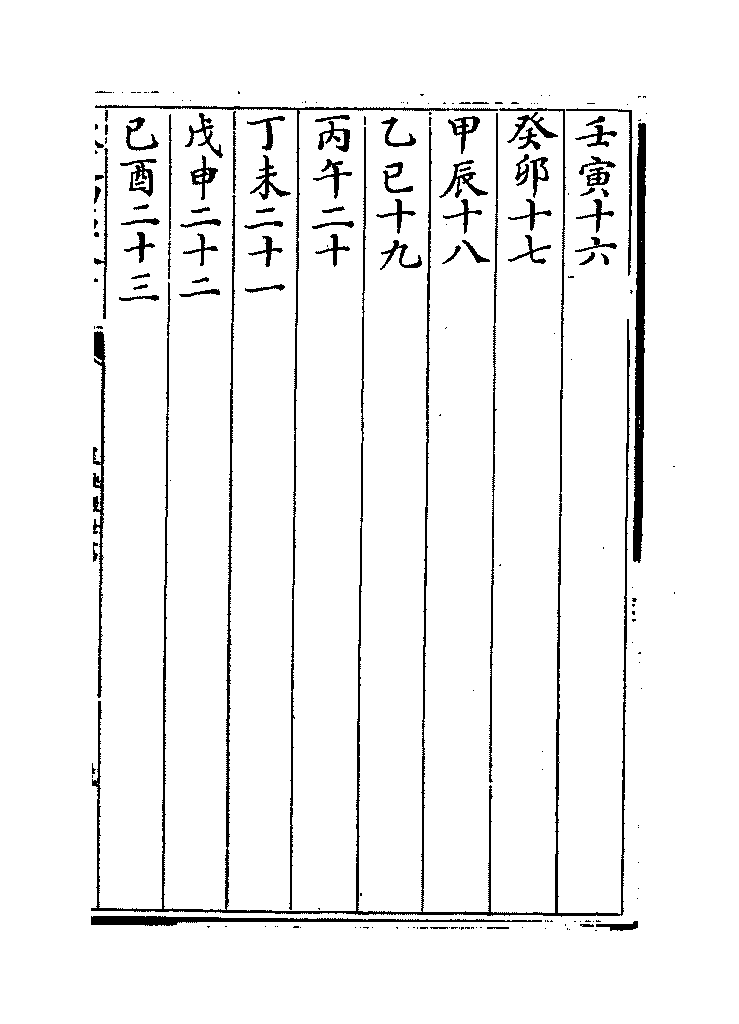 壬寅十六
癸卯十七
甲辰十八
乙巳十九
丙午二十
丁未二十一
戊申二十二
己酉二十三